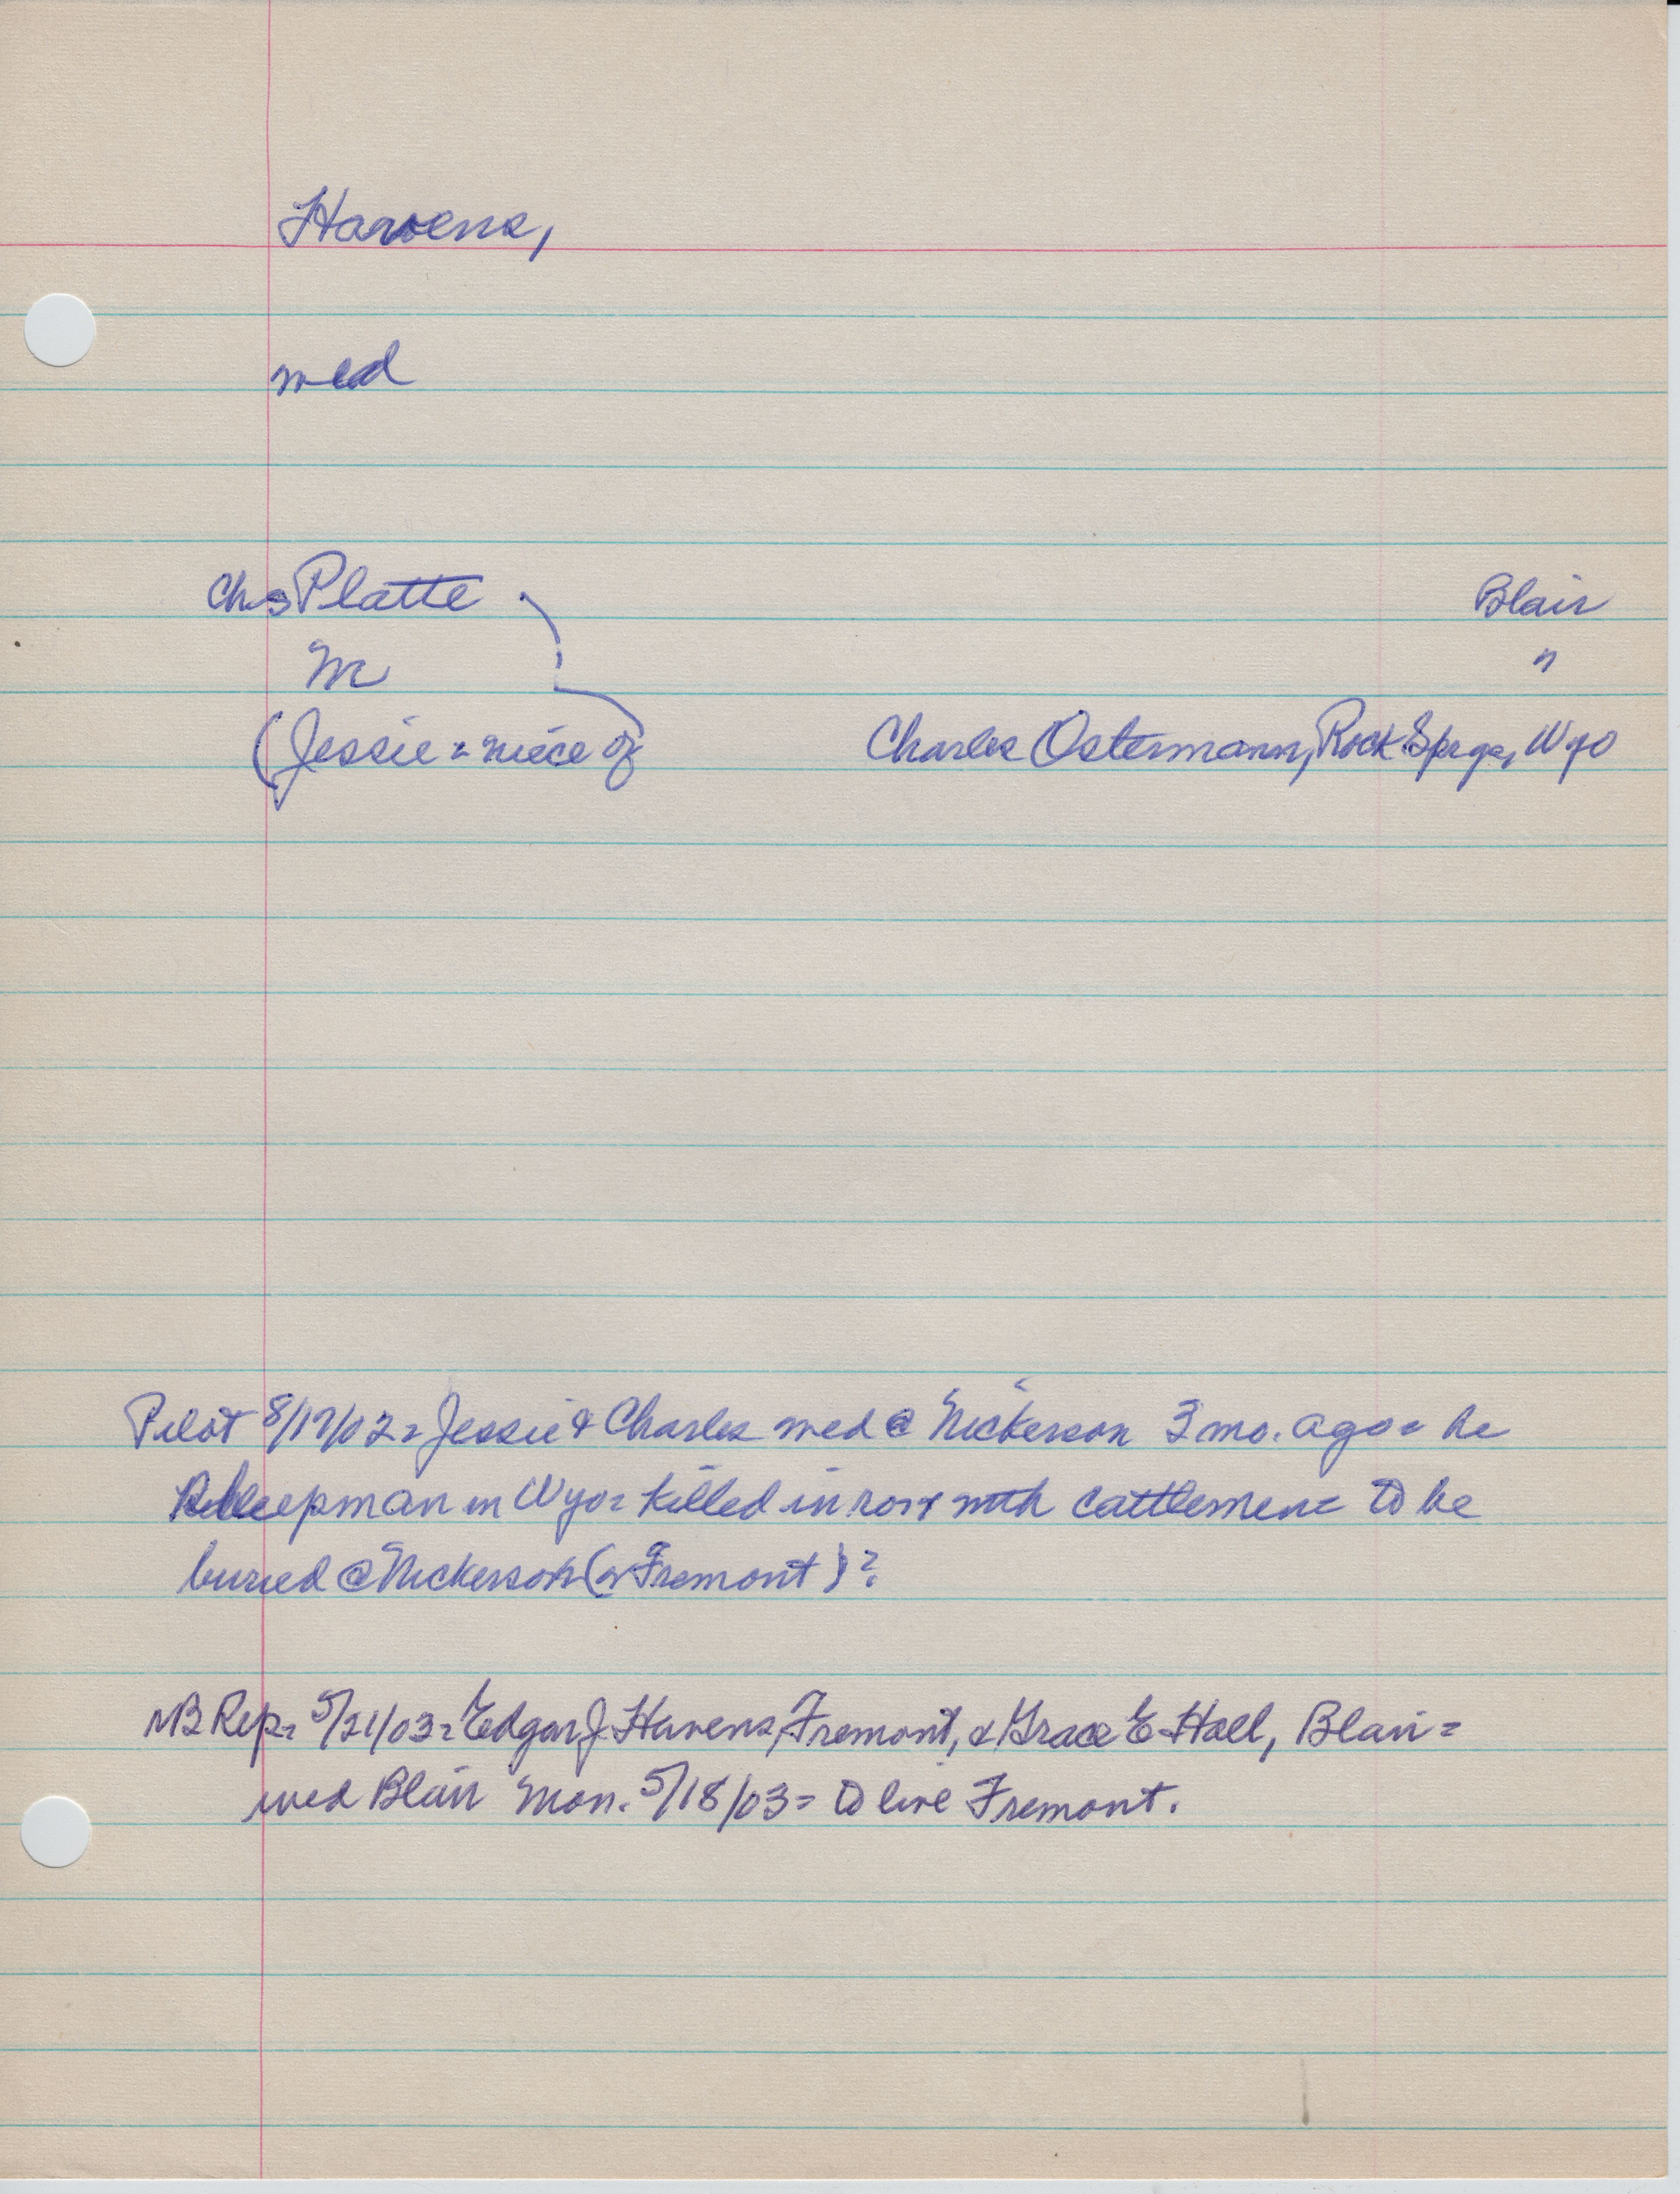 Havens,
med
Chs Platte Blair
M "
(Jessie = niece of Charles Ostermann, Rock Sprgs, Wyo
Pilot 8/17/02 = Jessie & Charles med @ Nickerson 3 mo. ago = he
sheepman in Wyo = killed in row with cattlemen = to be
buried @ Nickerson (or Fremont)?
MB Rep = 5/21/03 = Edgar J. Havens, Fremont, & Grace E Hall, Blair =
med Blair Mon. 5/18/03 = to live Fremont.